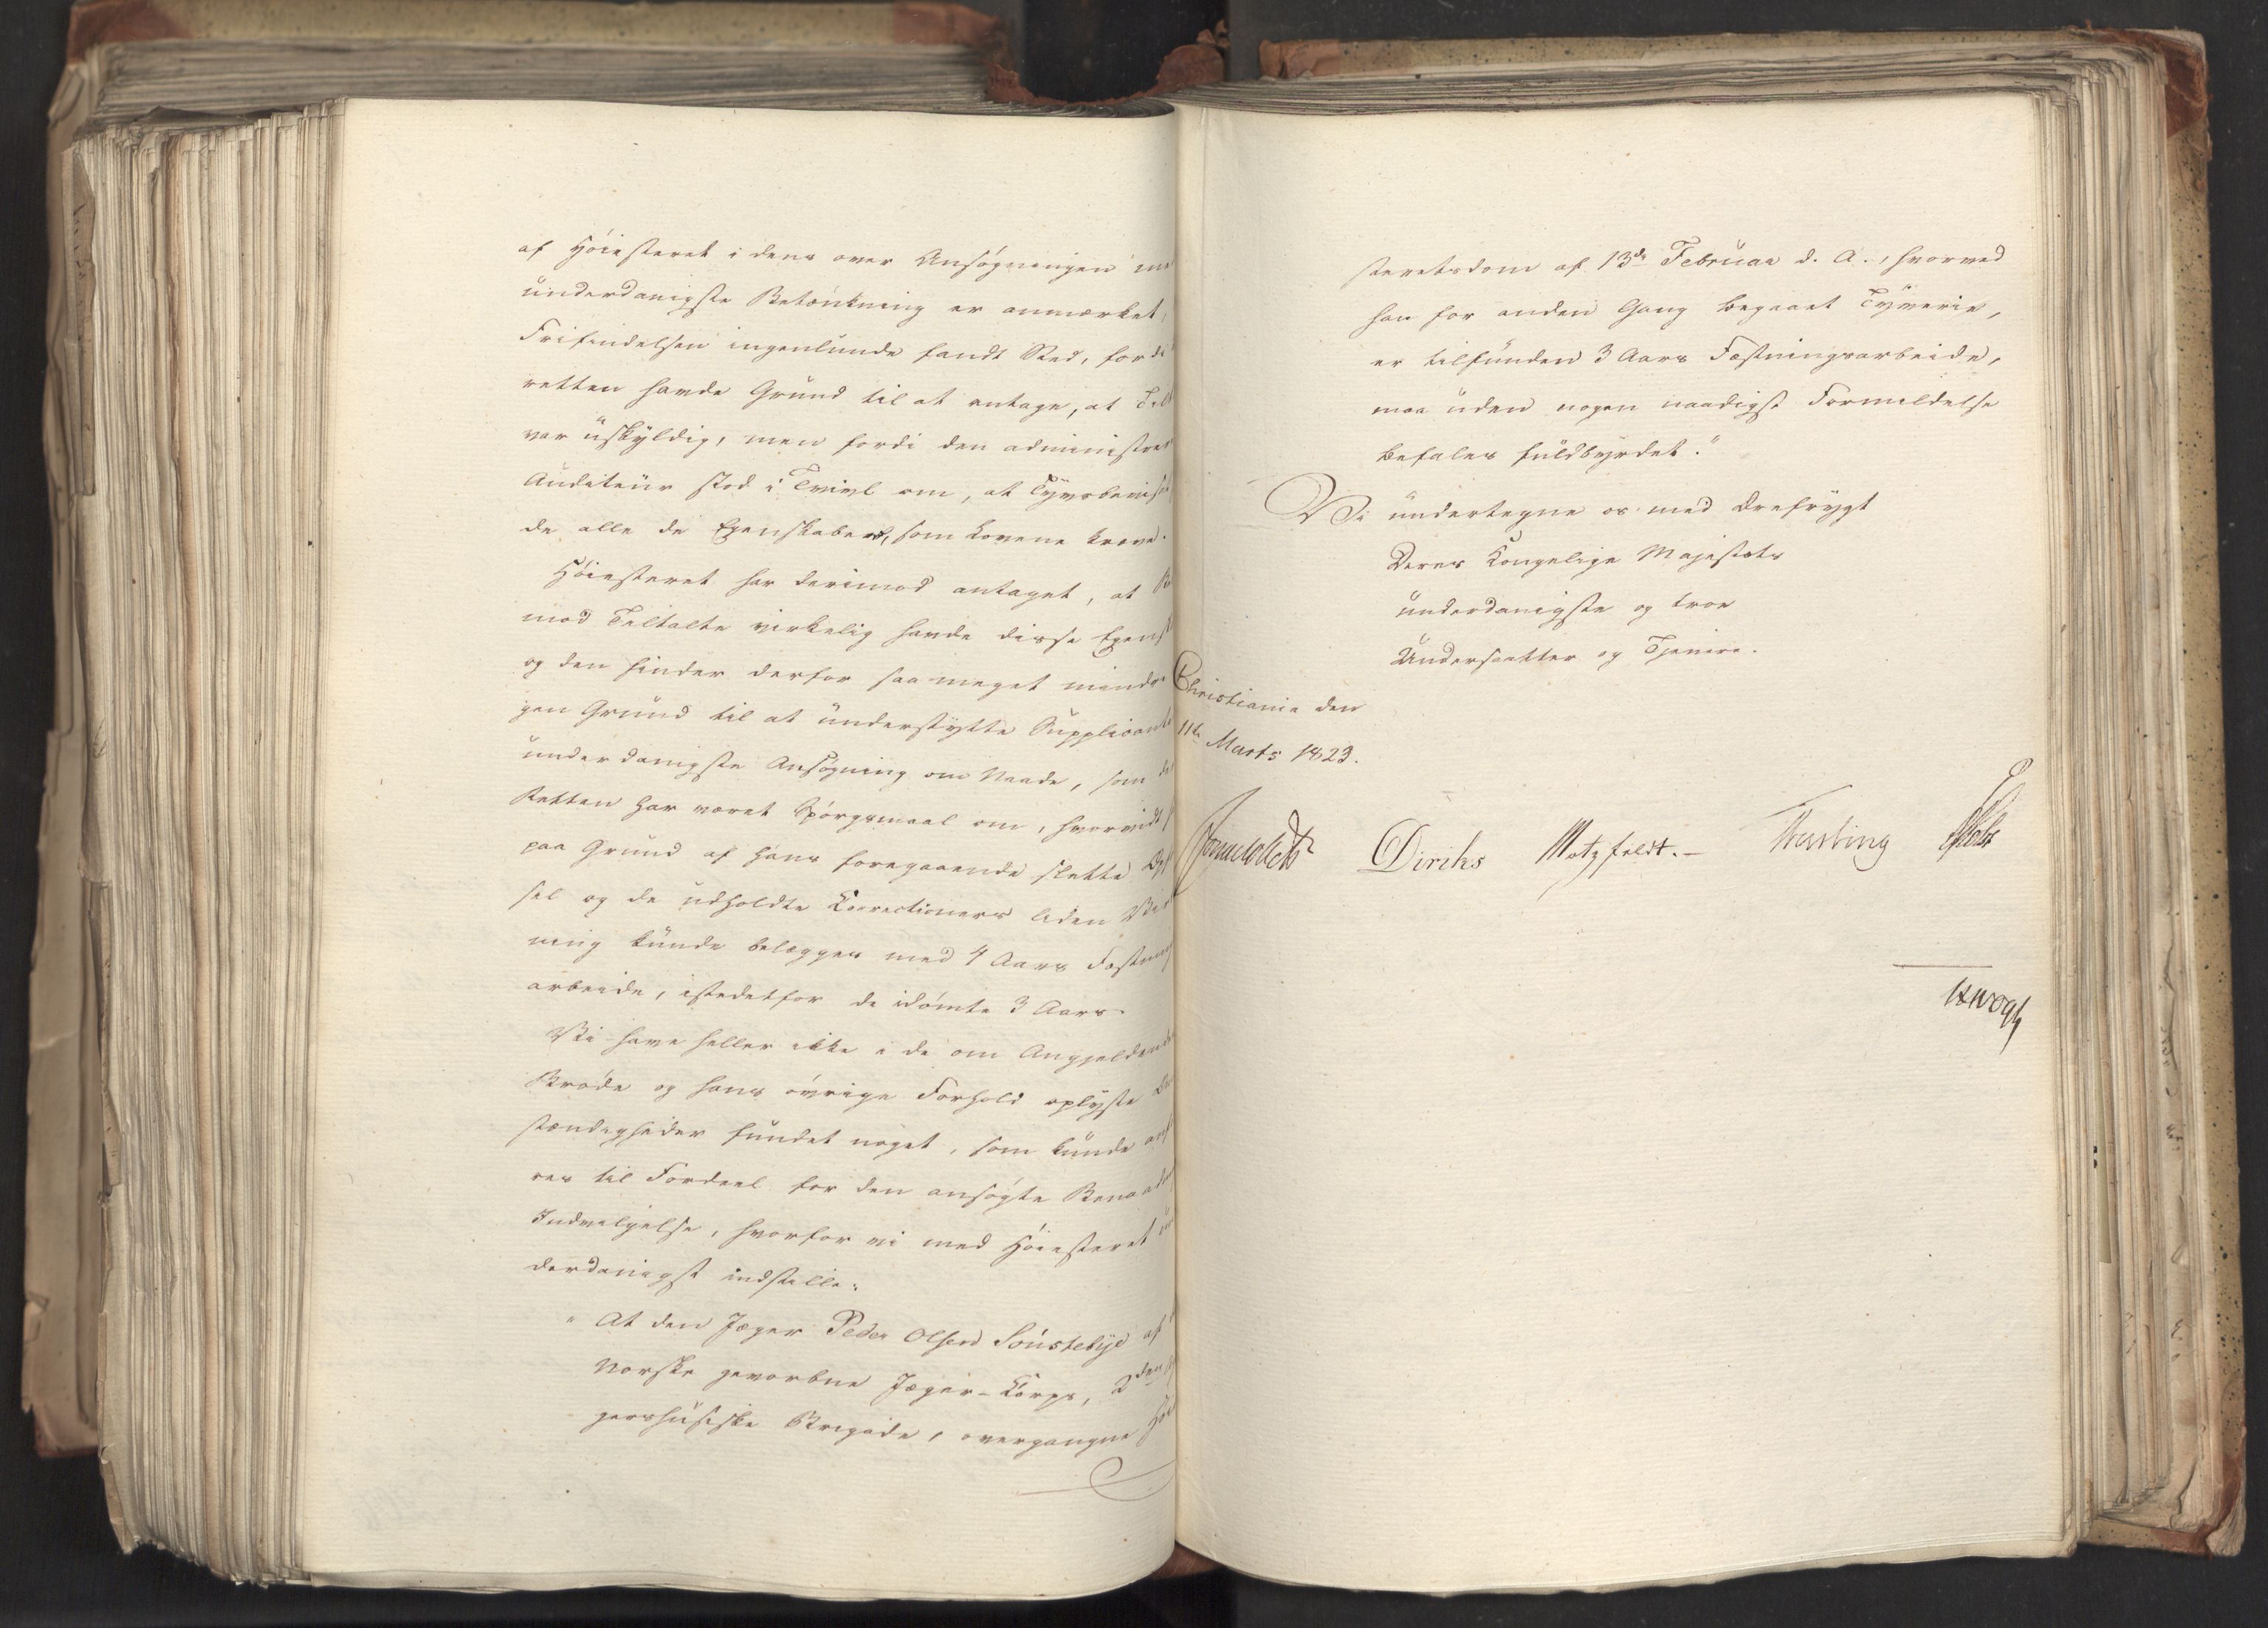 af Høiesteret i dens over Ansøgningen
underdanigste Betænkning er anmærket,
Frifindelsen ingenlunde fandt Sted, fordi
retten havde Grund til at antage, at
var uskyldig, men fordi den
Auditeur stod i Tvivl om, at
de alle de Egenskaber, som Lovene kræve.
Høiesteret har derimod antaget, at
mod Tiltalte virkelig havde disse
og den finder derfor saameget mindre
gen Grund til at understøtte
underdanigste Ansøgning om Naade, som
Retten har været Spørgsmaal om, hvorvidt
paa Grund af hans foregaaende slette
sel og de udholdte Correctioners liden
ning kunde belægges med 4 Aars
arbeide, istedetfor de idømte 3 Aars.
Vi have heller ikke i de om
Brøde og hans øvrige Forhold oplyste
stændigheder fundet noget, som kunde
res til Fordeel for den ansøgte
Indvilgelse, hvorfor vi med Høiesteret
derdanigst indstille:
"At den Jæger Peder Olsen Sønstebye af
Norske gevorbne Jæger-Corps, 2den
gershusiske Brigade, overgangne
steretsdom af 13de Februar d. A., hvorved
han for anden Gang begaaet Tyverie,
er tilfunden 3 Aars Fæstningsarbeide,
maa uden nogen naadigst Formildelse
befales fuldbyrdet."
Vi undertegne os med Ærefrygt
Deres Kongelige Majestæts
underdanigste og troe
Undersaatter og Tjenere.
Christiania den
11te Marts 1823.
Sommerhielm Diriks Motzfeldt.- Treschow